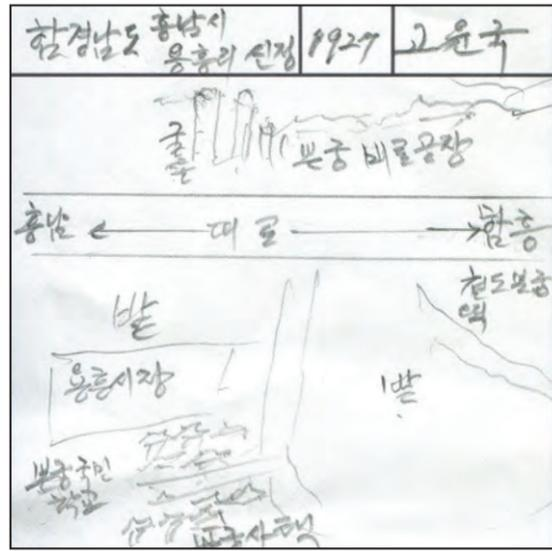 함경남도 흥남시
용흥리 신정
1927
고윤국
굴뚝
본궁 비료공장
흥남 ← 대로 → 함흥
철도본궁
역
밭
용흥시장
밭
본궁국민
학교
본궁사택